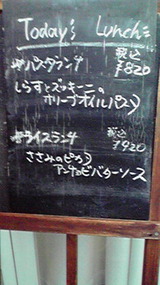 Today's Lunch
パスタランチ 税込 ¥820
しらすとズッキーニの
オリーブオイルパスタ
ライスランチ 税込 ¥920
ささみのピカタ
アンチョビバターソース